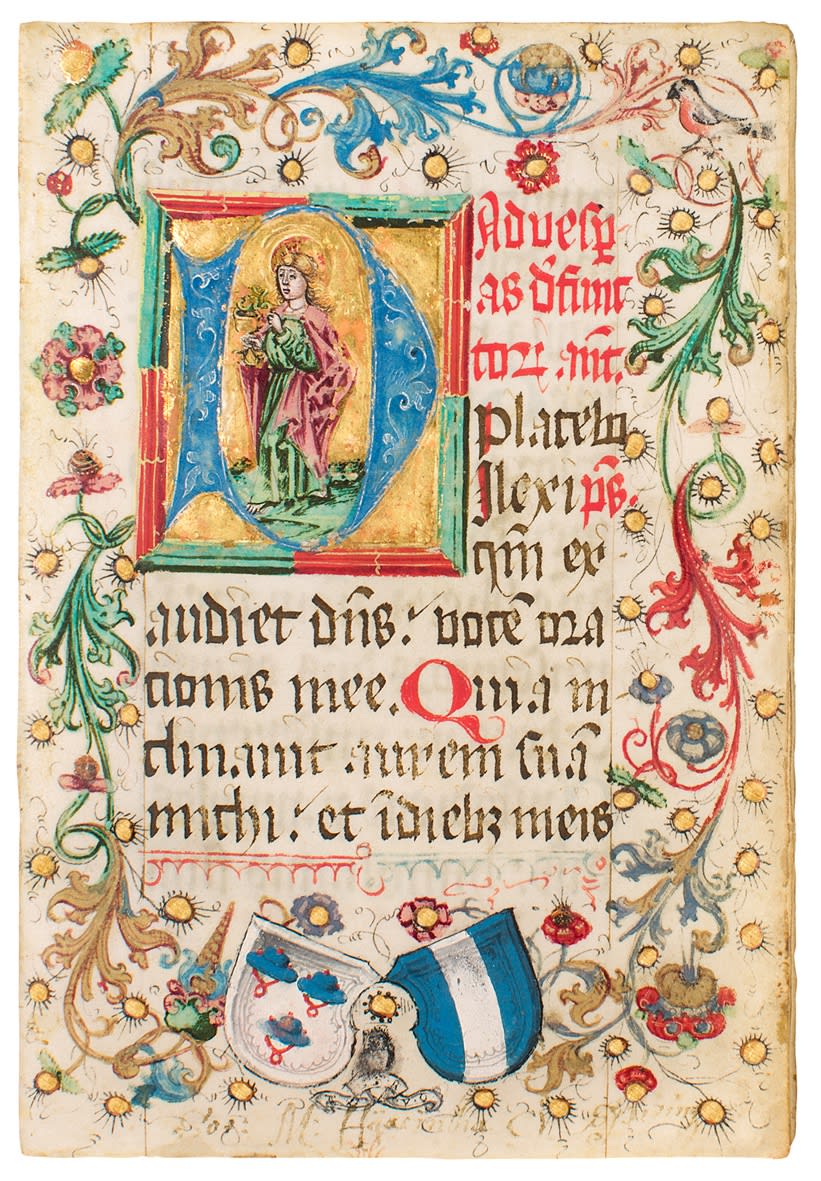 D
Ad vesꝑ
as dˀfunc
toꝝ ant̄.
placebo
Ilexi p̄s.
qm̄ ex
audiet dn̄s: vocē ora
cionis mee. Quia in
clinauit aurem suā
michi: et ī diebꝫ meis